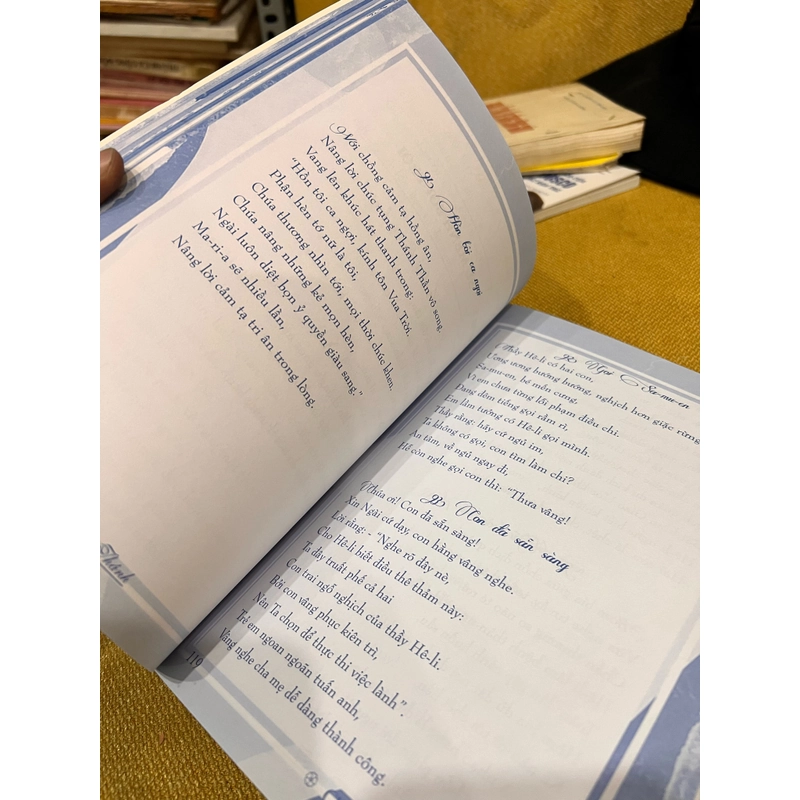 Hồn tôi ca ngợi
Với chồng cảm tạ hồng ân,
Nâng lời chúc tụng Thánh Thần vô song,
Vang lên khúc hát thanh trong:
"Hồn tôi ca ngợi, kính tôn Vua Trời.
Phận hèn tớ nữ là tôi,
Chúa thương nhìn tới, mọi thời chúc khen.
Chúa nâng những kẻ mọn hèn,
Ngài luôn diệt bọn ỷ quyền giàu sang."
Ma-ri-a sẽ nhiều lần,
Nâng lời cảm tạ tri ân trong lòng.
Thánh
Gọi Sa-mu-en
Thầy Hê-li có hai con,
Ương ương bướng bướng, nghịch hơn giặc rừng
Sa-mu-en, bé mến cưng,
Vì em chưa từng lỗi phạm điều chi.
Đang đêm tiếng gọi rầm rì,
Em lầm tưởng có Hê-li gọi mình.
Thầy rằng: hãy cứ ngủ im,
Ta không có gọi, con tìm làm chi?
An tâm, về ngủ ngay đi,
Hễ còn nghe gọi con thì: "Thưa vâng!
Con đã sẵn sàng
Chúa ơi! Con đã sẵn sàng!
Xin Ngài cứ dạy, con hằng vâng nghe.
Lời rằng: - "Nghe rõ đây nè,
Cho Hê-li biết điều thê thảm này:
Ta đây truất phế cả hai
Con trai ngỗ nghịch của thầy Hê-li.
Bởi con vâng phục kiên trì,
Nên Ta chọn để thực thi việc lành".
Trẻ em ngoan ngoãn tuấn anh,
Vâng nghe cha mẹ dễ dàng thành công.
110